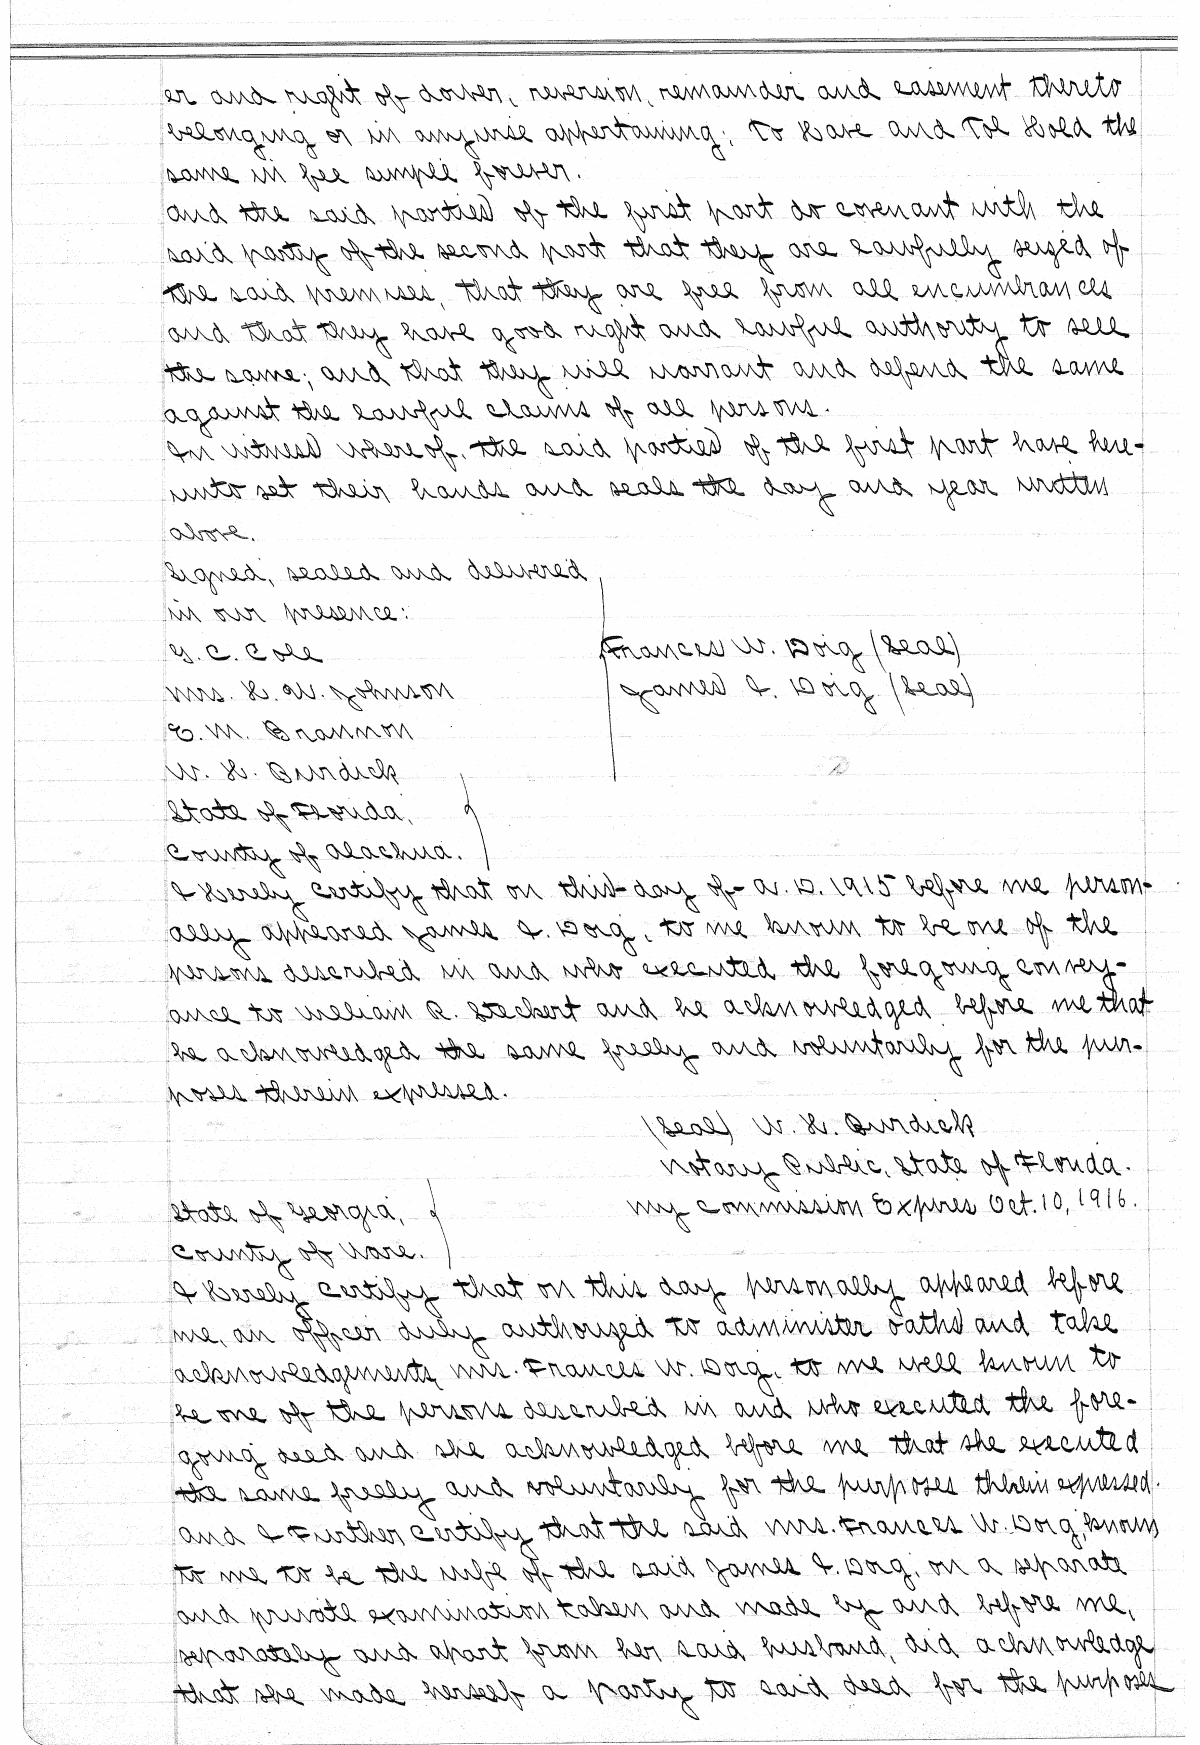 er and right of dower, reversion, remainder and easement thereto
belonging or in anywise appertaining; To Have and Tol Hold the
same in fee simple forever.
And the said parties of the first part do covenant with the
said party of the second part that they are lawfully seized of
the said premises, that they are free from all encumbrances
and that they have good right and lawful authority to sell
the same; and that they will warrant and defend the same
against the lawful claims of all persons.
In witness whereof, the said parties of the first part have here-
unto set their hands and seals the day and year written
above.
Signed, sealed and delivered
in our presence:
G. C. Cole
Frances W. Doig (Seal)
Mrs. H. W. Johnson
James I. Doig (Seal)
E. M. Brannon
W. H. Burdick
State of Florida,
County of Alachua.
I Hereby Certify that on this-day of- A. D. 1915 before me person-
ally appeared James I. Doig, to me known to be one of the
persons described in and who executed the foregoing convey-
ance to William R. Steckert and he acknowledged before me that
he acknowledged the same freely and voluntarily for the pur-
poses therein expressed.
(Seal) W. H. Burdick
Notary Public, State of Florida.
My Commission Expires Oct. 10, 1916.
State of Georgia,
County of Ware.
I Hereby Certify that on this day personally appeared before
me, an officer duly authorized to administer oaths and take
acknowledgements, Mrs. Frances W. Doig, to me well known to
be one of the persons described in and who executed the fore-
going deed and she acknowledged before me that she executed
the same freely and voluntarily for the purposes therein expressed.
And I Further Certify that the said Mrs. Frances W. Doig, known
to me to be the wife of the said James I. Doig, on a separate
and private examination taken and made by and before me,
separately and apart from her said husband, did acknowledge
that she made herself a party to said deed for the purposes